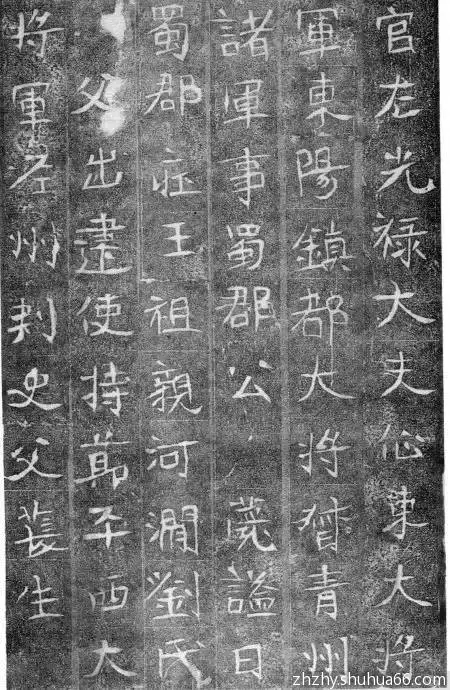 官左光禄大夫征東大將
軍東陽鎮都大將督青州
諸軍事蜀郡公薨謚曰
蜀郡莊王祖親河澗劉氏
父出建使持節平西大
將軍州刺史父萇生
zhzhy.shuhua66.com